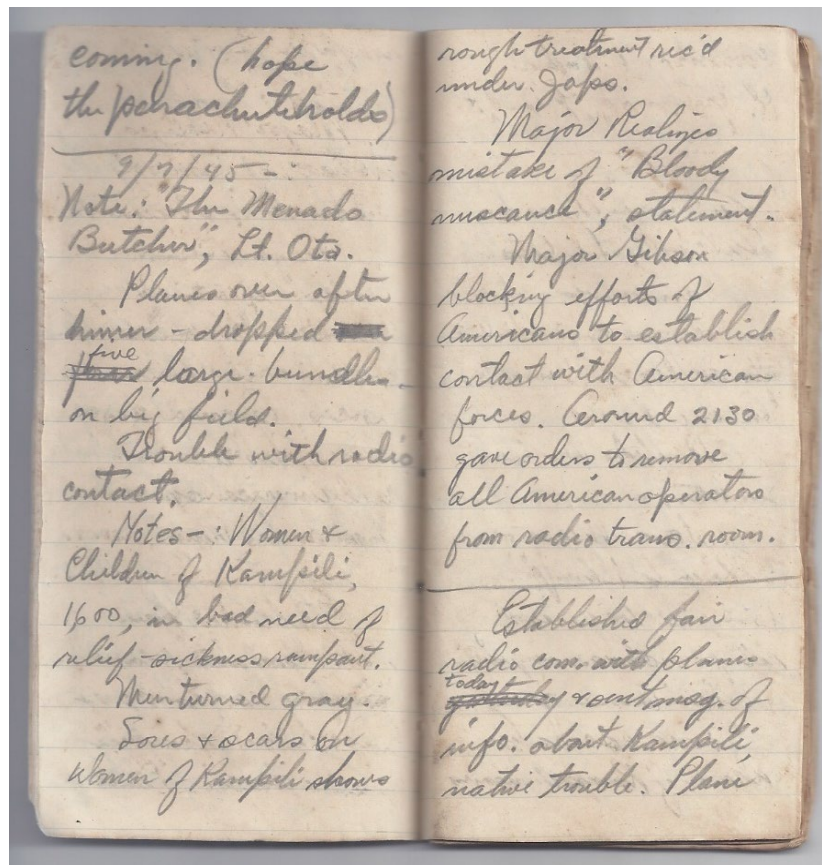 coming. (hope
the parachute holds)
9/7/45 -
Note: "The Menado
Butcher", Lt. Ota.
Planes over after
dinner - dropped
five large bundles
on big field.
Trouble with radio
contact.
Notes -: Women &
Children of Kampili,
1,600, in bad need of
relief - sickness rampant.
Men turned gray.
Sores & scars on
women of Kampili shows
rough treatment rec'd
under Japs.
Major Realizes
mistake of "Bloody
nuscance", statement.
Major Gibson
blocking efforts of
Americans to establish
contact with American
forces. Around 2130
gave orders to remove
all American operators
from radio trans. room.
Established fair
radio com. with planes
today & sent msg. of
info. about Kampili,
native trouble. Plane